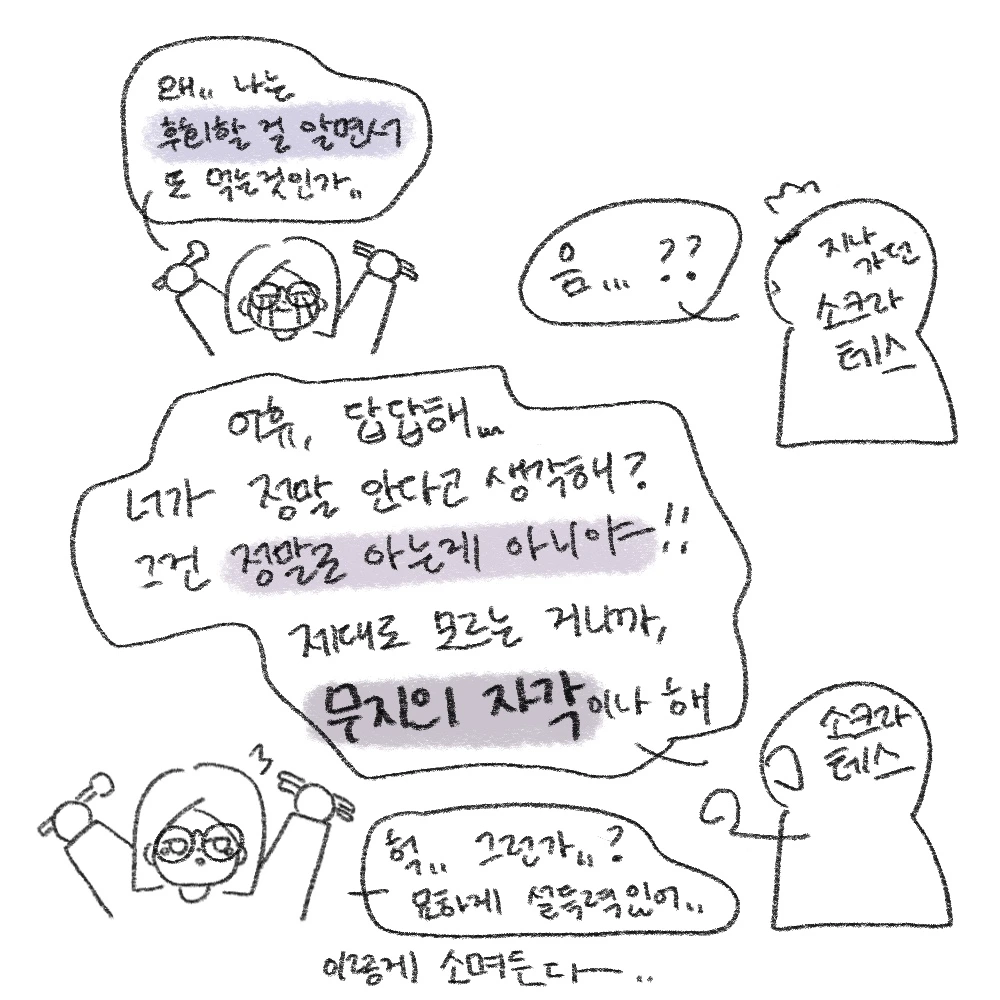 왜.. 나는
후회할 걸 알면서
또 먹는것인가..
음... ??
지나
가던
소크라
테스
어휴, 답답해...
너가 정말 안다고 생각해?
그건 정말로 아는게 아니야!!
제대로 모르는 거니까,
무지의 자각이나 해
소크라
테스
헉.. 그런가..?
묘하게 설득력있어..
이렇게 소며든다ㅡ..